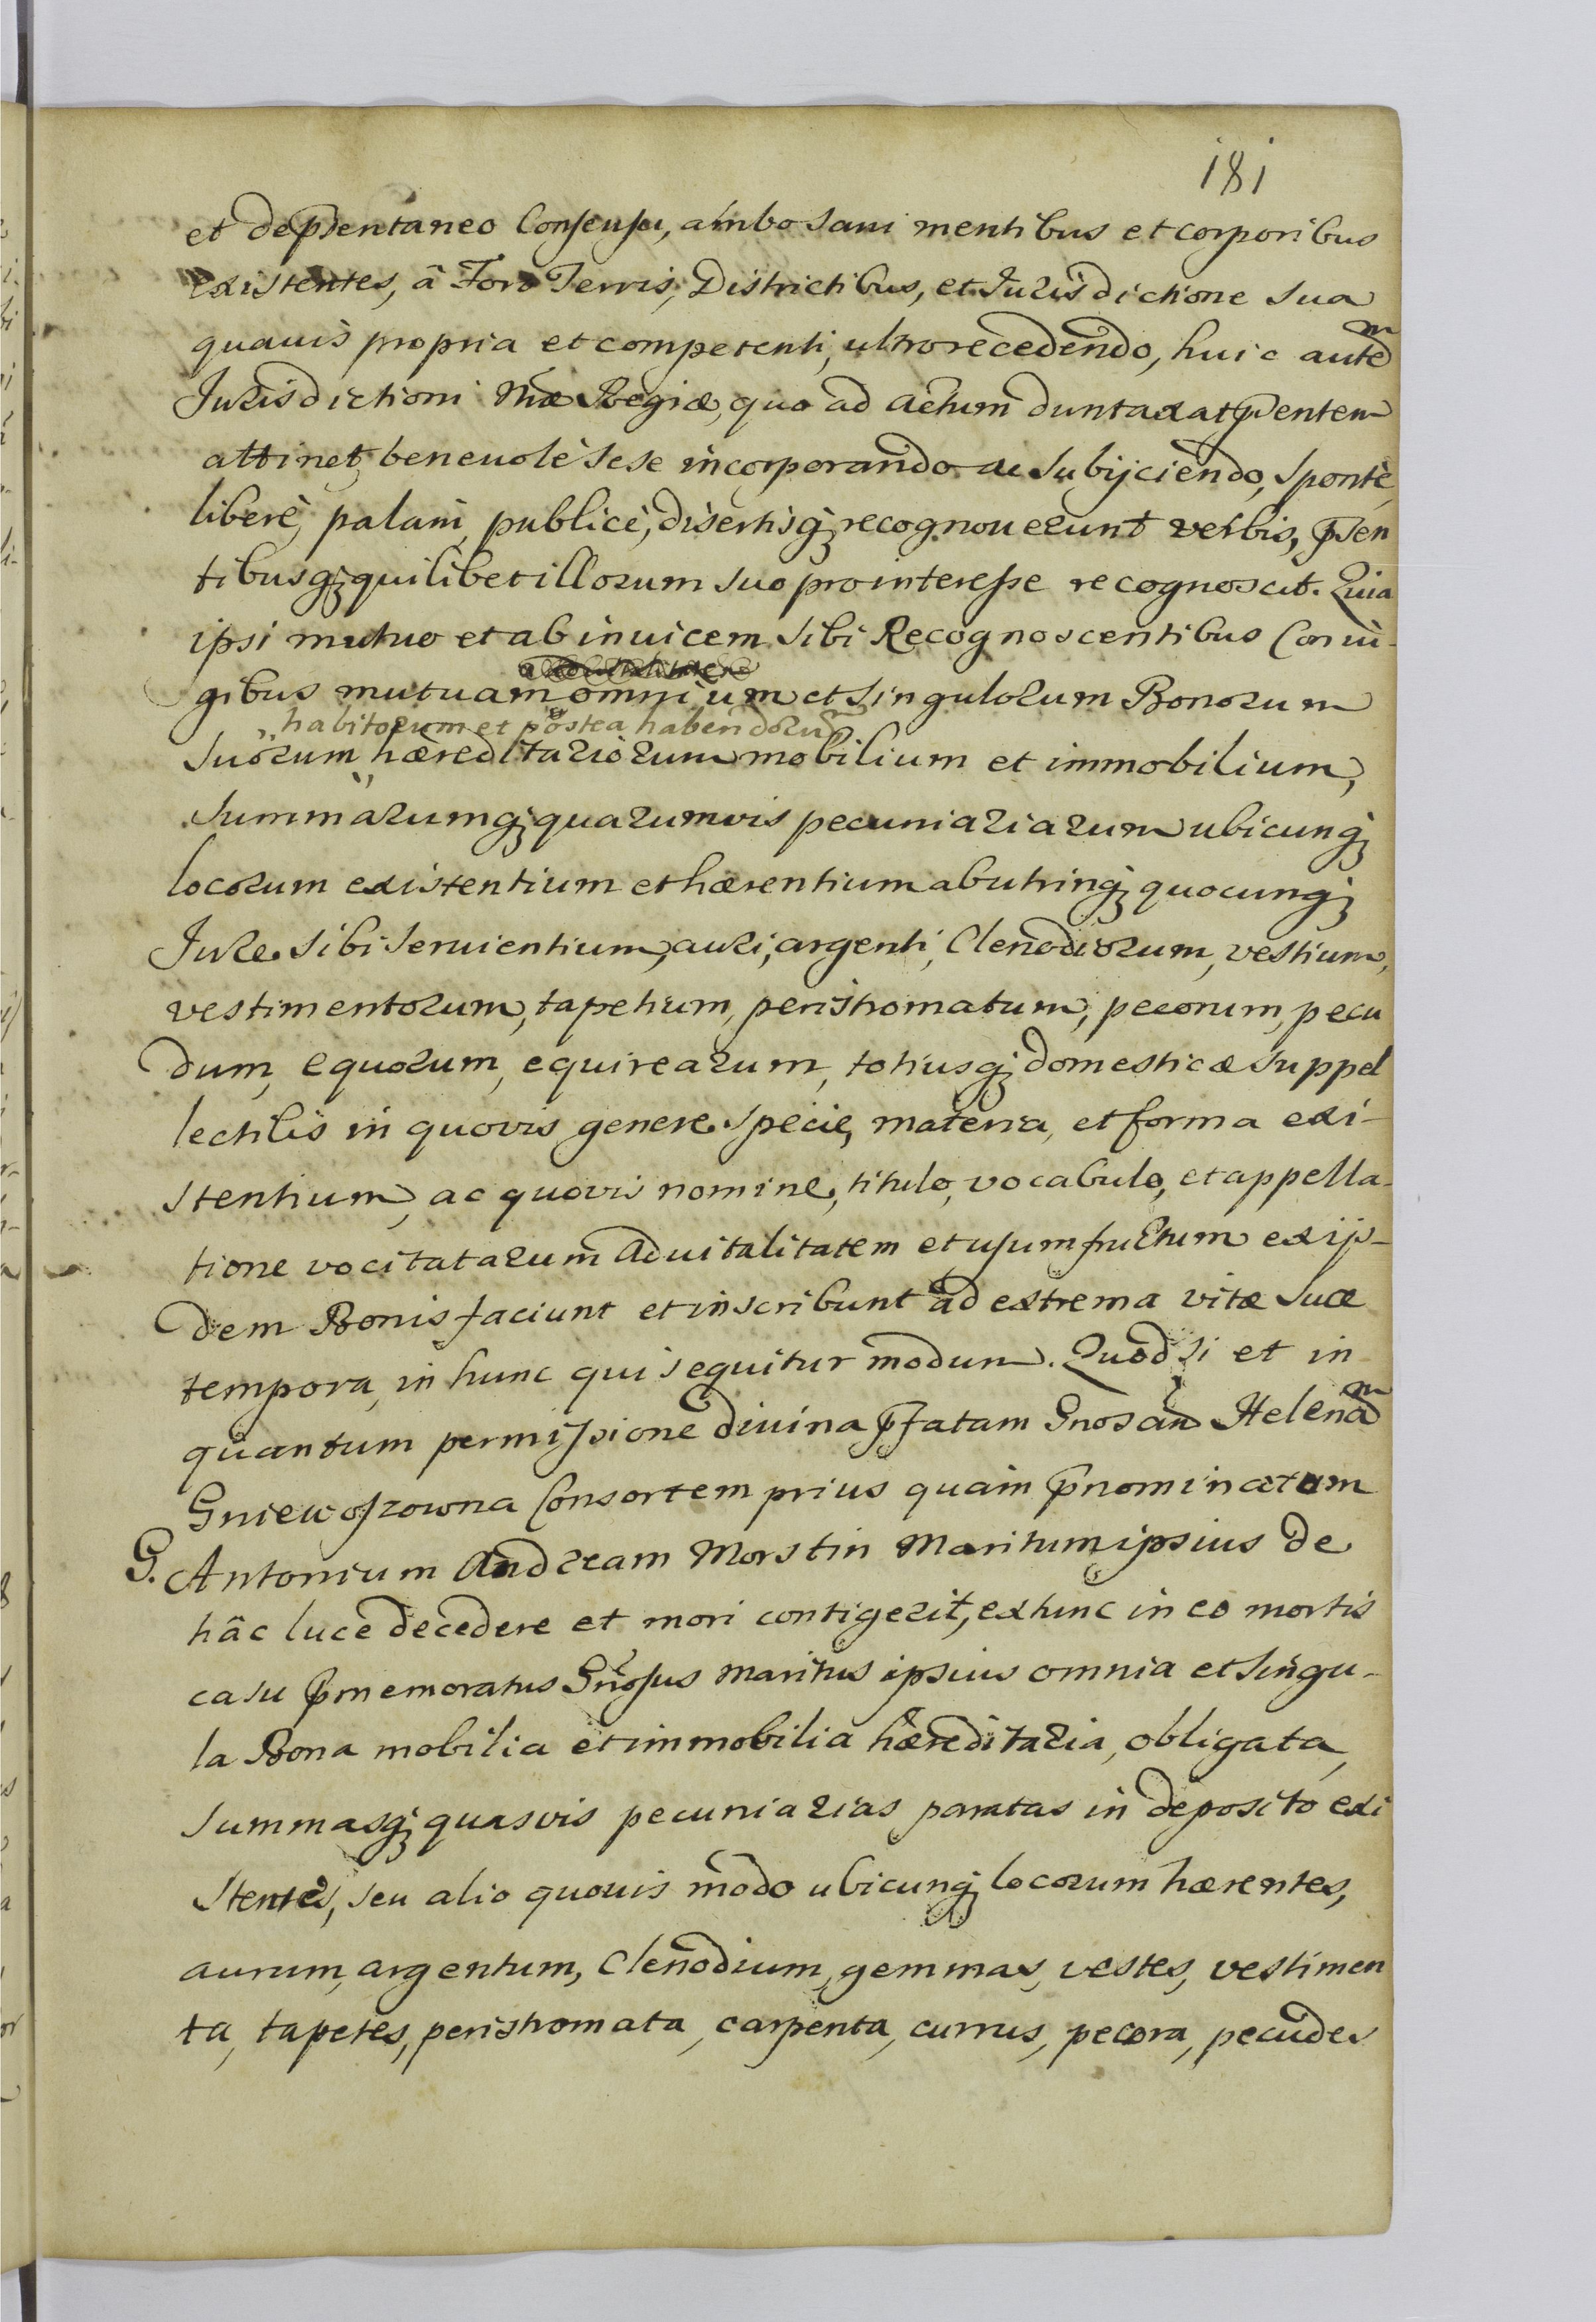 181
et deprntaneo Consensu, ambo sani mentibus et corporibus
existentes, â Foro Terris, Districtibus, et Jurisdictione sua
quauis propria et competenti, ultro recedendo, huic autem
Jurisdictioni Nræ Regiæ, quo ad actum duntaxat pñtem
attinet, beneuolè sese incorporando ac subijciendo, Spontè,
liberè, palam, publicè, disertisq; recognouerunt verbis, pñsen
tibusq; quilibet illorum suo pro interesse recognoscit. Quia
ipsi mutuo et ab inuicem sibi Recognoscentibus Coniu-
gibus mutuam omnium et singulorum Bonorum
habitorum et postea habendorum
suorum hæreditariorum mobilium et immobilium,
summarumq; quarumvis pecuniariarum ubicunq;
locorum existentium et hærentium ab utrinq; quocunq;
Jure sibi seruientium, auri, argenti, Clenodiorum, vestium,
vestimentorum, tapetium, peristromatum, pecorum, pecu
dum, equorum, equirearum, totiusq; domesticæ suppel
lectilis in quovis genere specie, materia, et forma exi-
stentium, ac quovis nomine, titulo, vocabulo, et appella-
tione vocitatarum aduitalitatem et usumfructum ex ijs-
dem Bonis faciunt et inscribunt ad extrema vitæ suæ
tempora, in hunc qui sequitur modum. Quod si et in
quantum permissione divina pfatam Gnosam Helenam
Gniewoszowna Consortem prius quam pnominatum
G. Antonium Andream Morstin Maritum ipsius de
hâc luce decedere et mori contigerit, ex tunc in eo mortis
casu pmemoratus Gnosus Maritus ipsius omnia et singu-
la Bona mobilia et immobilia hæreditaria, obligata,
summasq; quasvis pecuniarias paratas in deposito exi
stentes, seu alio quouis modo ubicunq; locorum hærentes,
aurum, argentum, Clenodium, gemmas, vestes, vestimen
ta, tapetes, peristromata, carpenta, currus, pecora, pecudes